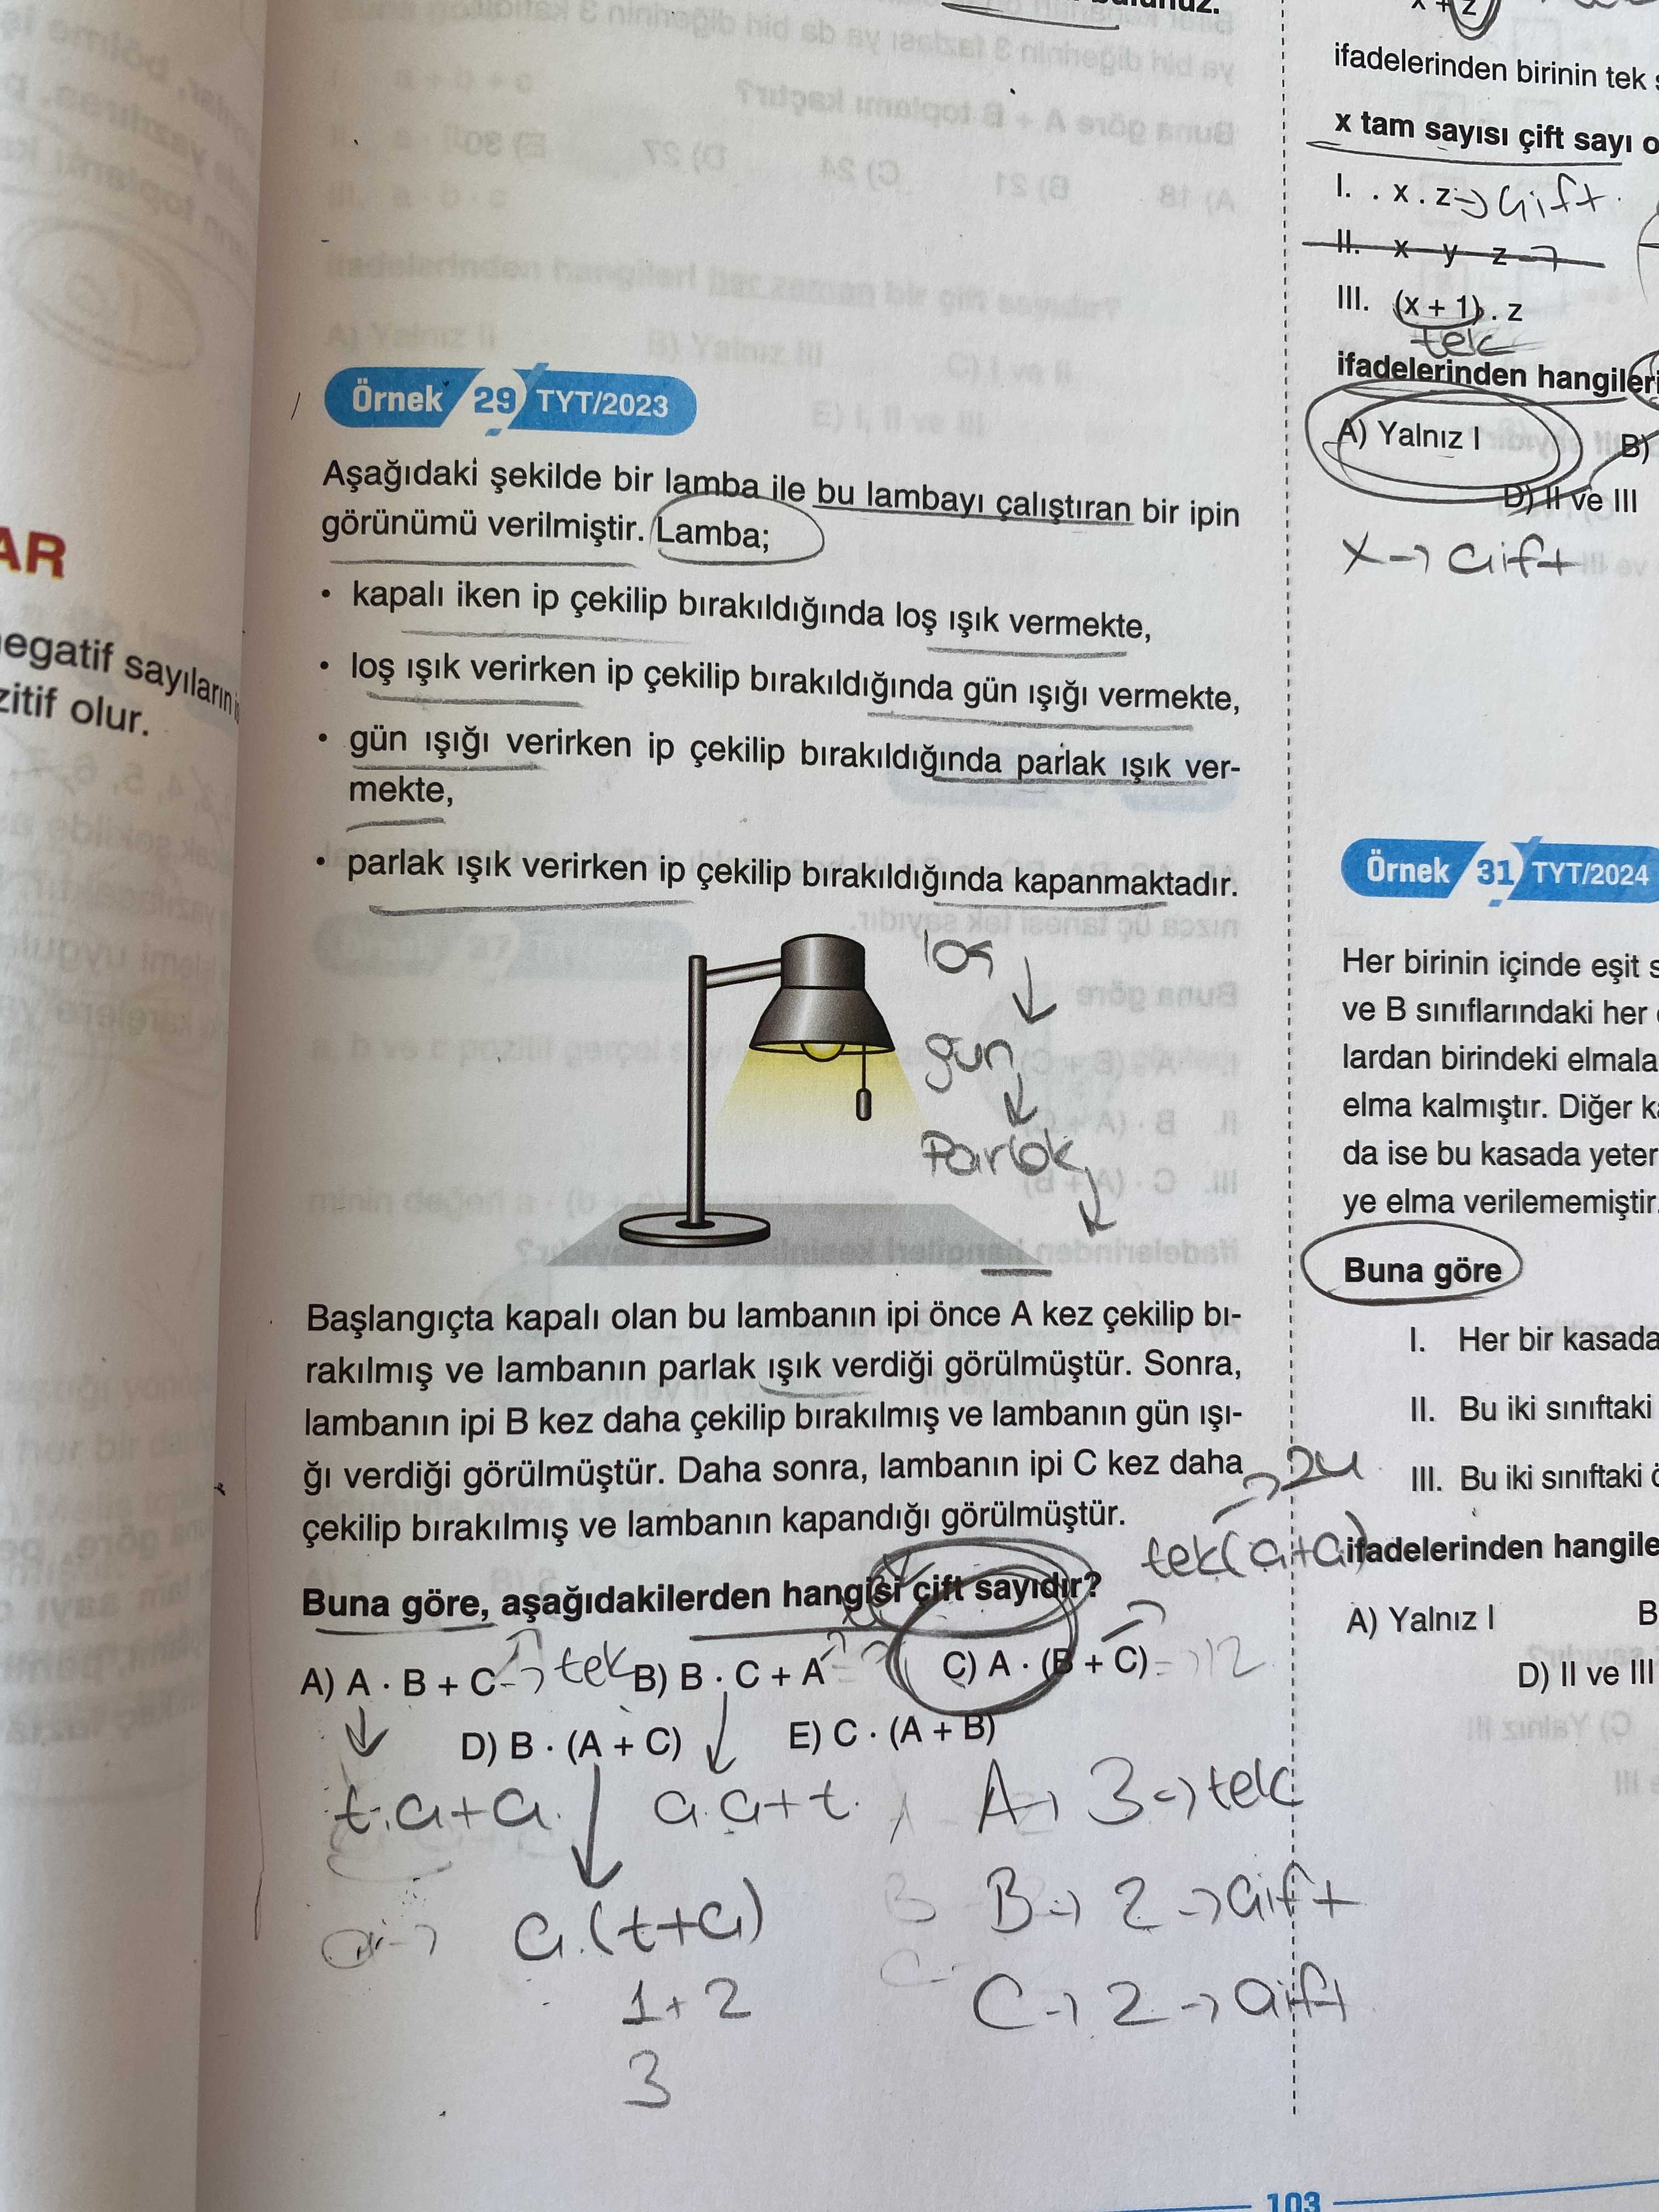 AR
negatif sayıların
zitif olur.
Örnek 29 TYT/2023
Aşağıdaki şekilde bir lamba ile bu lambayı çalıştıran bir ipin
görünümü verilmiştir. Lamba;
• kapalı iken ip çekilip bırakıldığında loş ışık vermekte,
• loş ışık verirken ip çekilip bırakıldığında gün ışığı vermekte,
• gün ışığı verirken ip çekilip bırakıldığında parlak ışık ver-
mekte,
• parlak ışık verirken ip çekilip bırakıldığında kapanmaktadır.
loş
gün
Parlak
Başlangıçta kapalı olan bu lambanın ipi önce A kez çekilip bı-
rakılmış ve lambanın parlak ışık verdiği görülmüştür. Sonra,
lambanın ipi B kez daha çekilip bırakılmış ve lambanın gün ışı-
ğı verdiği görülmüştür. Daha sonra, lambanın ipi C kez daha
çekilip bırakılmış ve lambanın kapandığı görülmüştür.
Buna göre, aşağıdakilerden hangisi çift sayıdır?
A) A · B + C → tek B) B · C + A C) A · (B + C) 12
D) B · (A + C) E) C · (A + B)
t.ç+ç. ç.ç+t.
ç.(t+ç)
1+2
3
A → 3 → tek
B → 2 → çift
C → 2 → çift
tek(ç+ç)
x + z
ifadelerinden birinin tek
x tam sayısı çift sayı o
I. x . z → çift
II. x y z
III. (x + 1) . z
tek
ifadelerinden hangileri
A) Yalnız I B)
D) II ve III
x → çift
Örnek 31 TYT/2024
Her birinin içinde eşit s
ve B sınıflarındaki her
lardan birindeki elmala
elma kalmıştır. Diğer ka
da ise bu kasada yeter
ye elma verilememiştir.
Buna göre
I. Her bir kasada
II. Bu iki sınıftaki
III. Bu iki sınıftaki ö
ifadelerinden hangile
A) Yalnız I B
D) II ve III
103